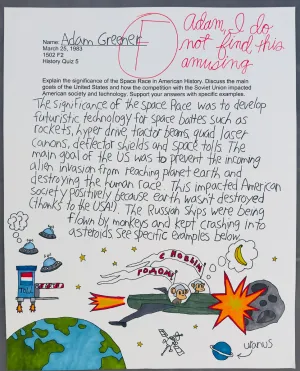 Name: Adam Greener
March 25, 1983
1502 F2
History Quiz 5
F
Adam, I do
not find this
amusing
Explain the significance of the Space Race in American History. Discuss the main
goals of the United States and how the competition with the Soviet Union impacted
American society and technology. Support your answers with specific examples.
The significance of the Space Race was to develop
futuristic technology for space battles such as
rockets, hyper drive, tractor beams, quad laser
canons, deflector shields and space tolls. The
main goal of the US was to prevent the incoming
alien invasion from reaching planet earth and
destroying the human race. This impacted American
society positively because earth wasn't destroyed
(thanks to the USA!). The Russian ships were being
flown by monkeys and kept crashing into
asteroids see specific examples below.
С НОВЫМ
ГОДОМ!
uranus